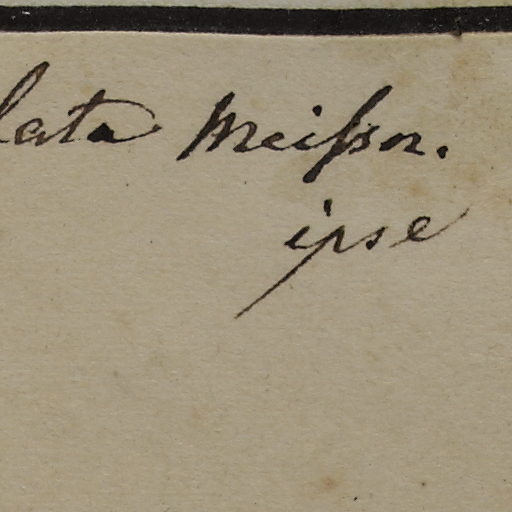 lata Meißn.
ipse